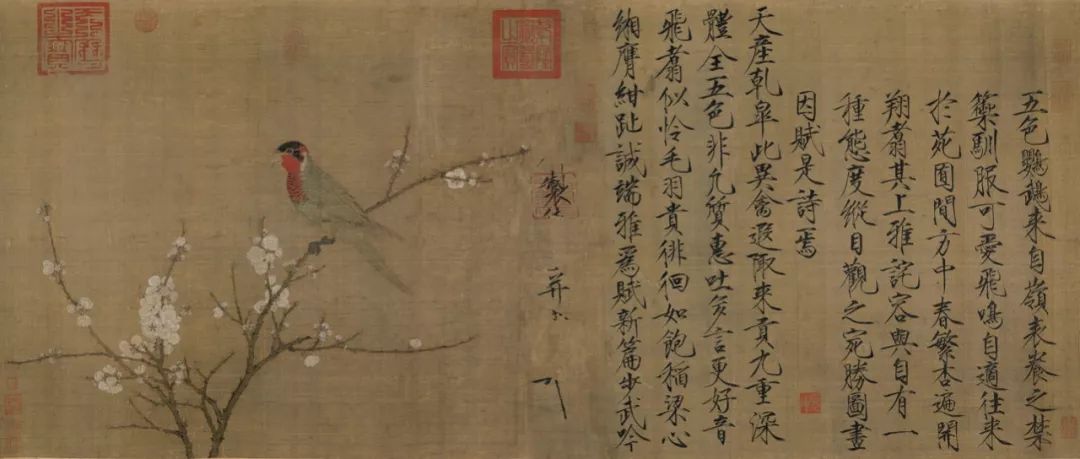 五色鸚鵡來自嶺表養之禁
籞馴服可愛飛鳴自適往來
於苑囿間方中春繁杏遍開
翔翥其上雅詫容與自有一
種態度縱目觀之宛勝圖畫
因賦是詩焉
天產乾皋此異禽遐陬來貢九重深
體全五色非凡質惠吐多言更好音
飛翥似怜毛羽貴徘徊如飽稻粱心
緗膺紺趾誠端雅為賦新篇步武吟
製
并書